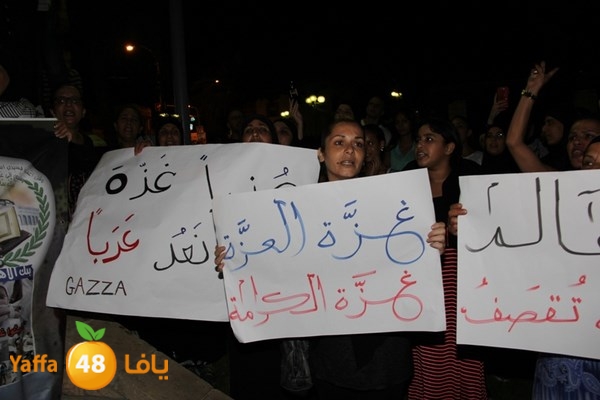 غزّة
نَعُدْ عَرَبًا
GAZZA
غـزّة العـزّة
غـزّة الكرامة
تُقصَفُ
Yaffa 48 يافا